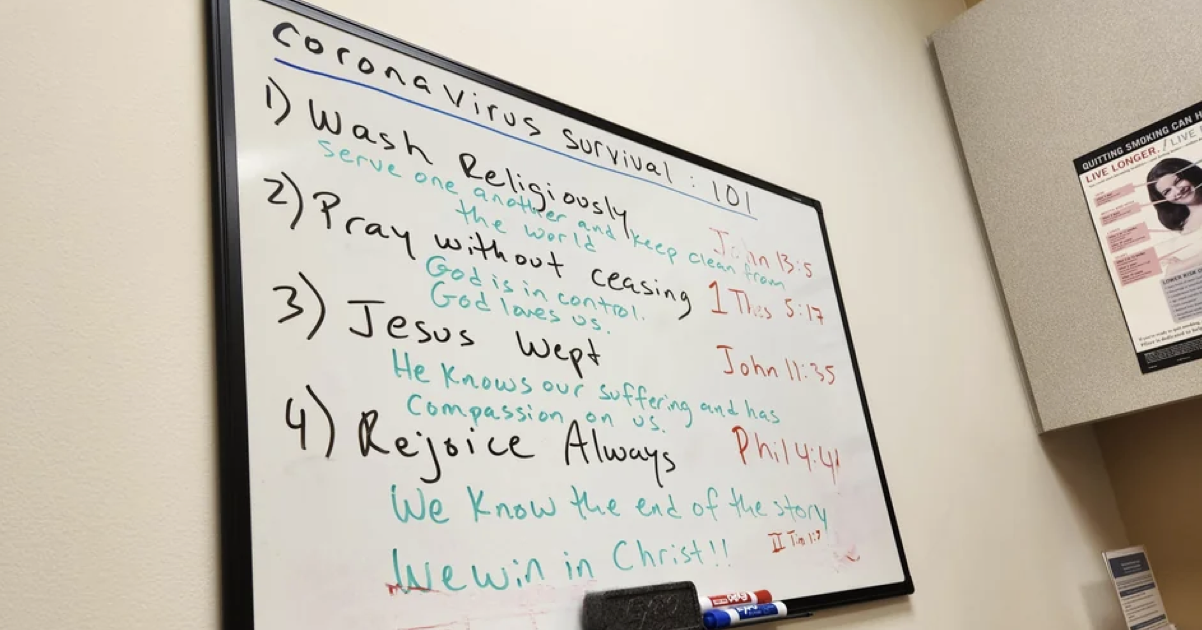 Coronavirus Survival : 101
1) Wash Religiously John 13:5
serve one another and keep clean from
the world
2) Pray without ceasing 1 Thes 5:17
God is in control.
God loves us.
3) Jesus Wept John 11:35
He Knows our suffering and has
Compassion on us.
4) Rejoice Always Phil 4:4
We Know the end of the story
We win in Christ!! II Tim 1:7
EXPO
QUITTING SMOKING CAN H
LIVE LONGER. / LIVE
LOWER RISK